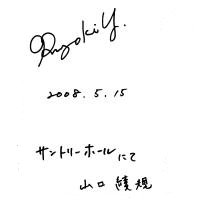 2008.5.15
サントリーホールにて
山口 綾規